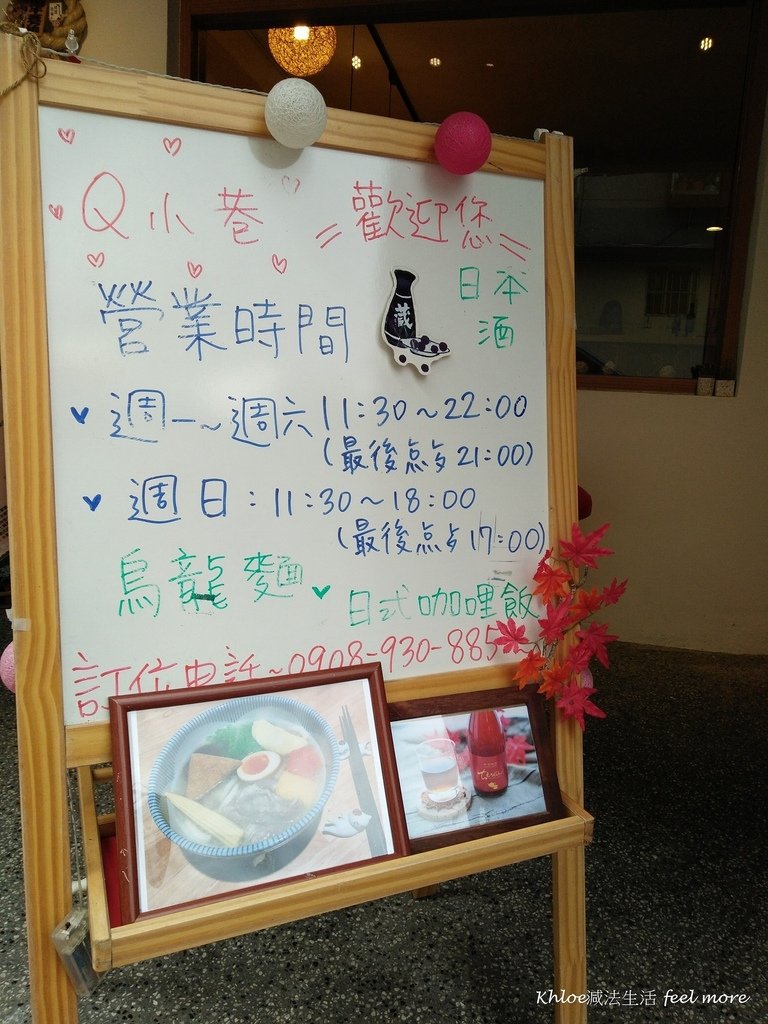 Q小巷 歡迎您
日本
酒
藏
營業時間
週一~週六 11:30~22:00
(最後点餐21:00)
週日:11:30~18:00
(最後点餐17:00)
烏龍麵 日式咖哩飯
訂位电話~0908-930-885
Khloe減法生活 feel more